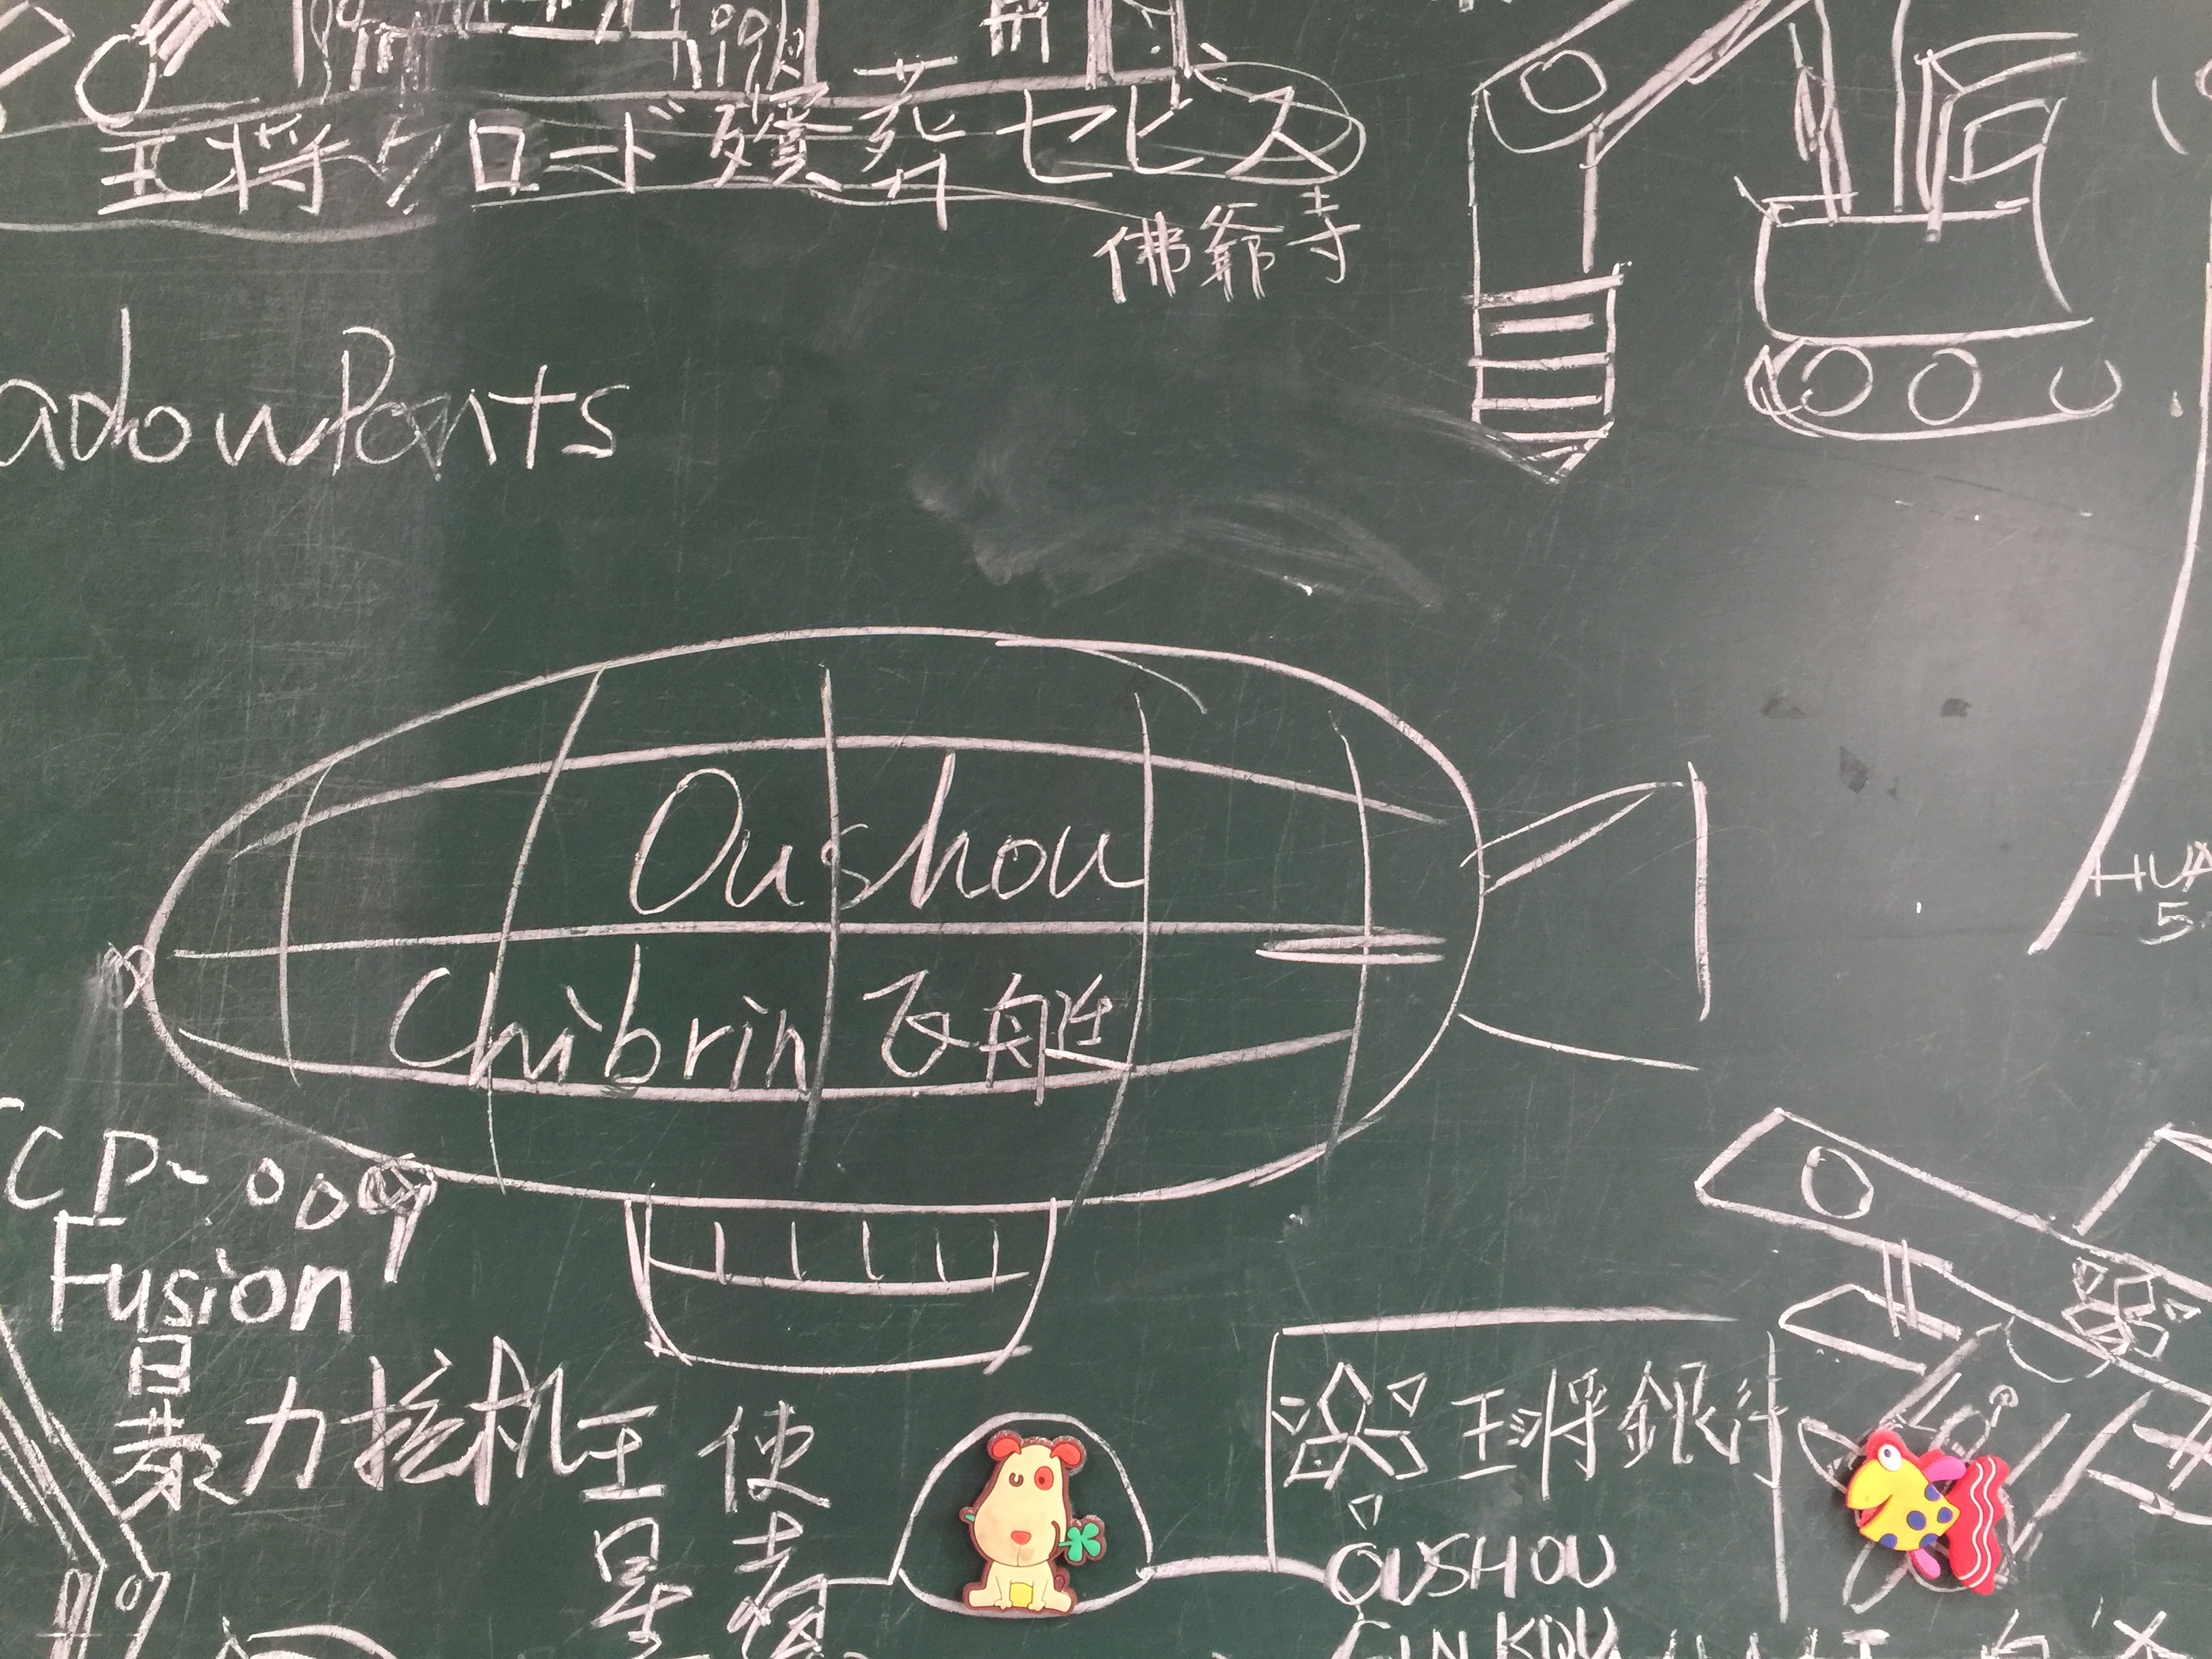 王将クロード殯葬セビス
佛爺寺
adowPants
Oushou
Chibrin飞艇
HUA
5.
CP-009
Fusion
暴力挖机
王星
使者
王将銀行
OUSHOU
GINKOU